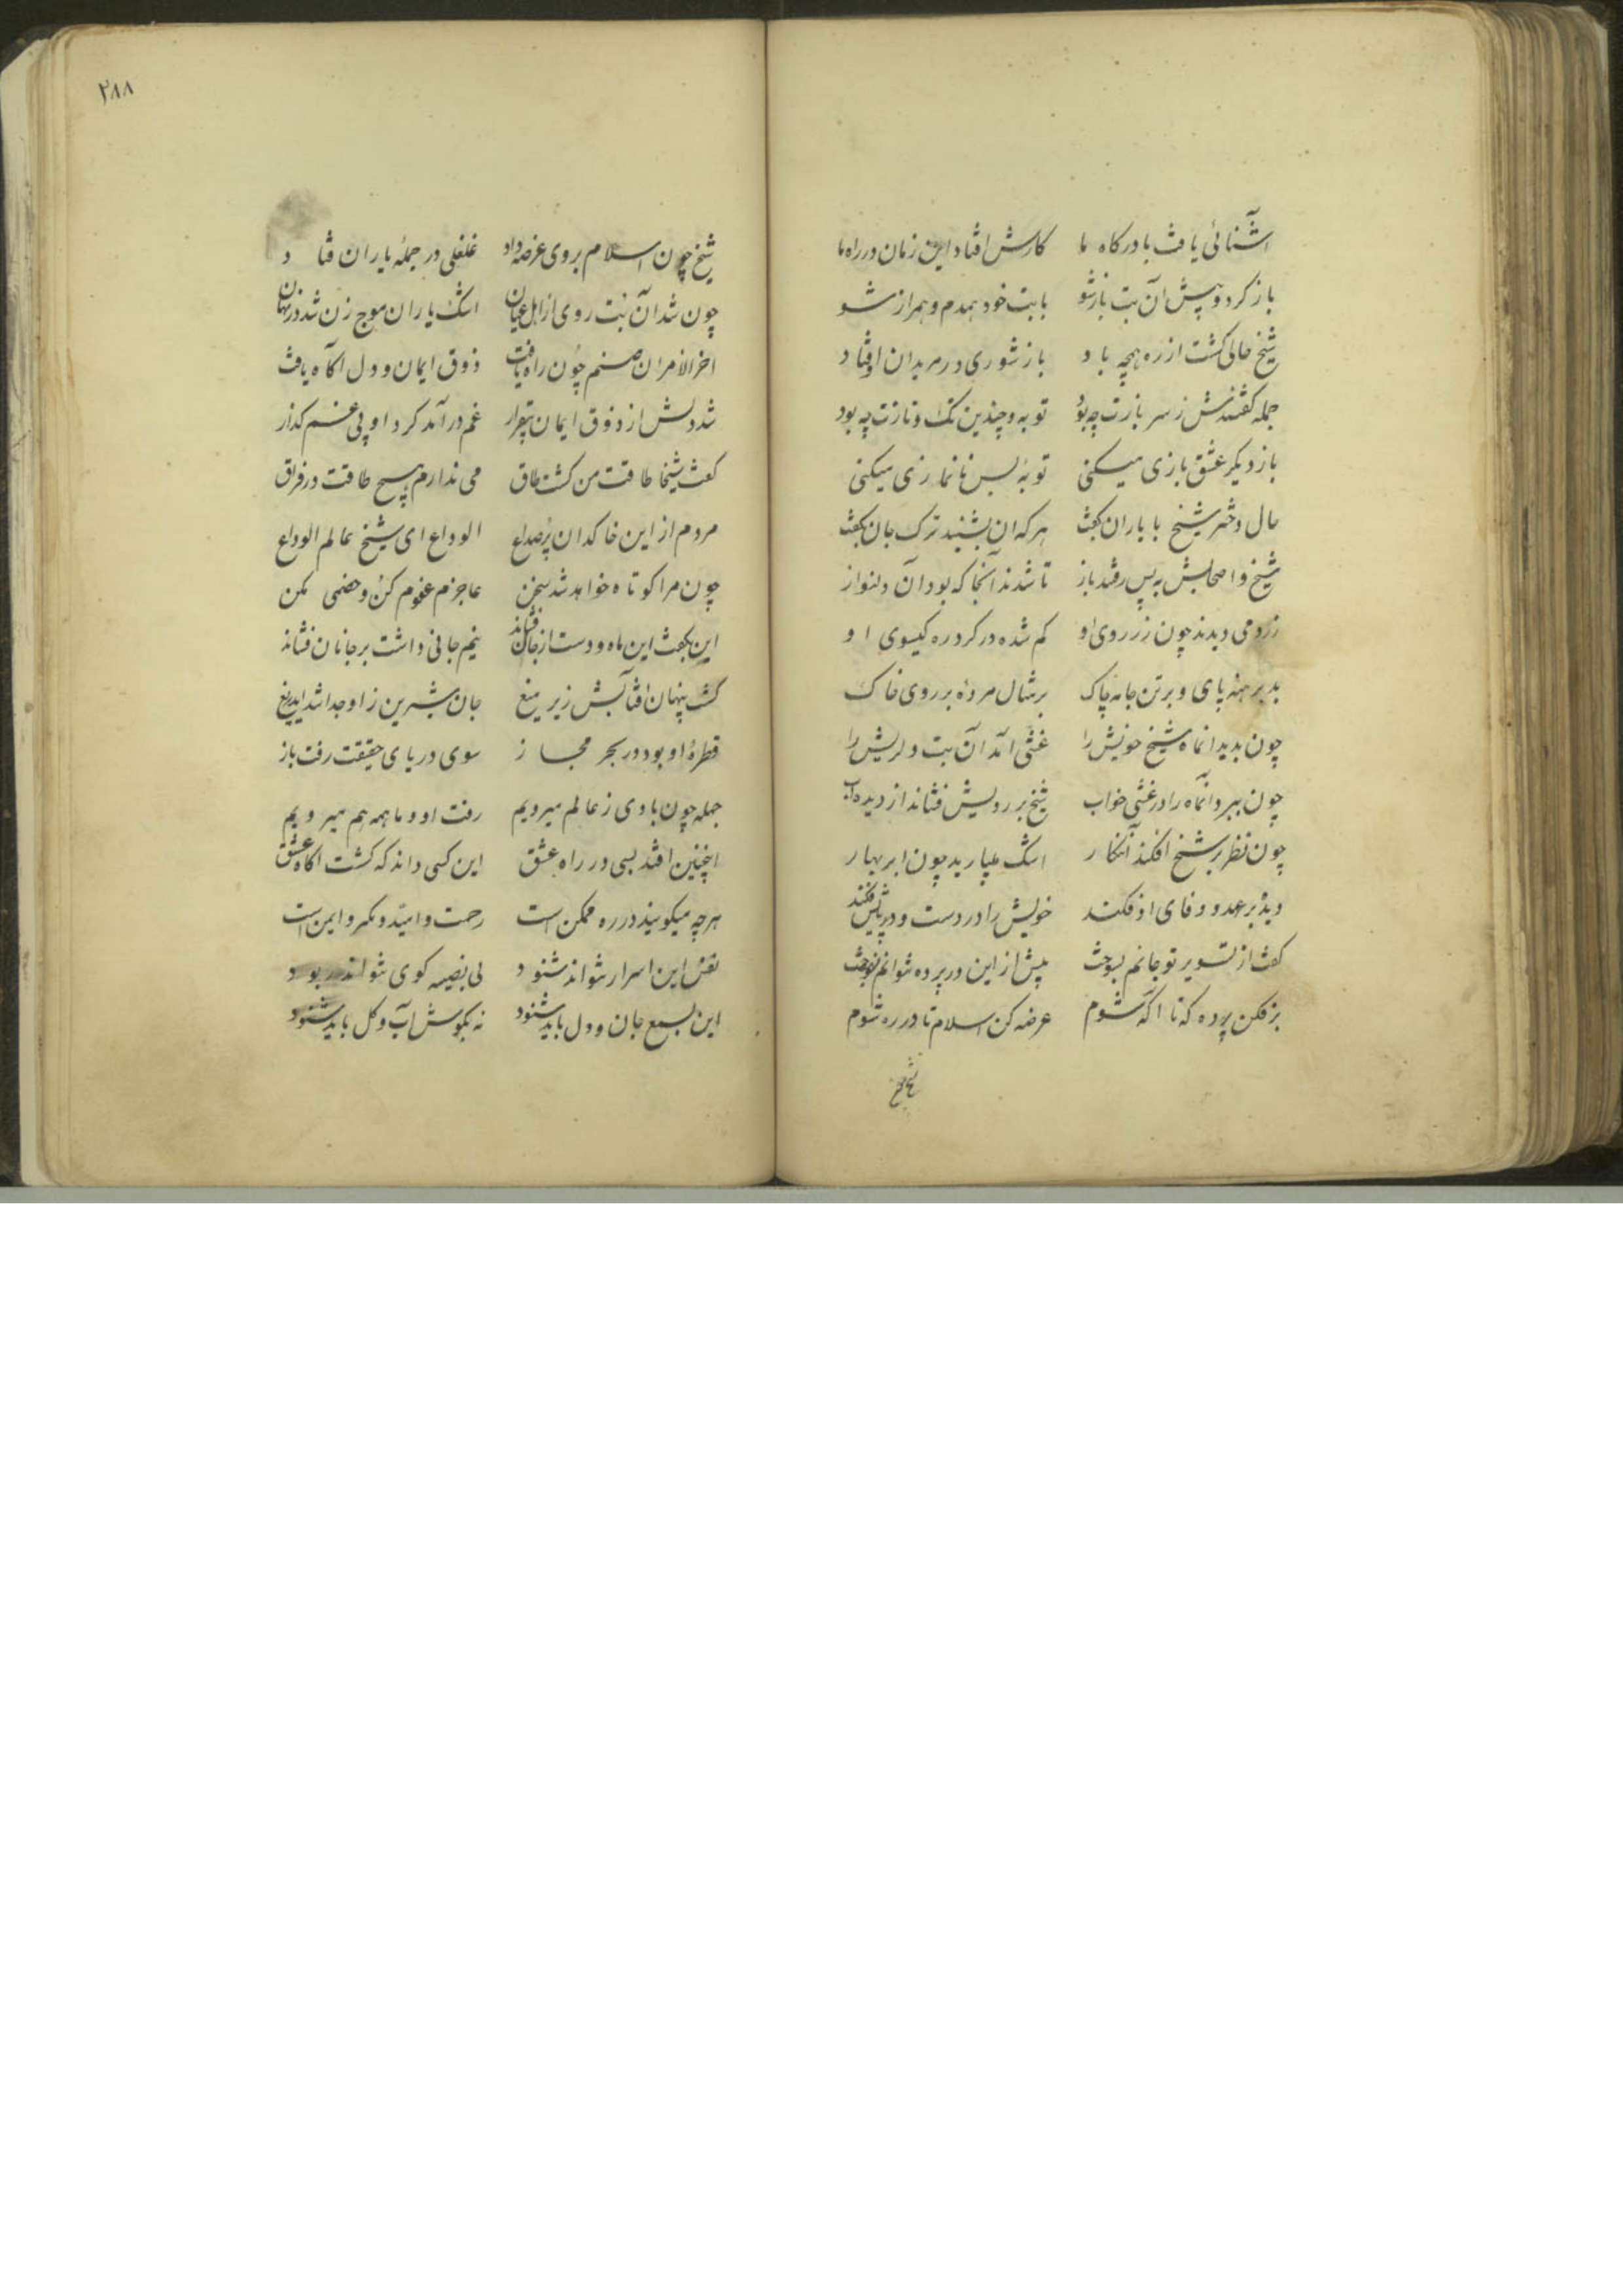 آشنائی یافت با درگاه ما کارش افتاد این زمان در راه ما
باز کرد و پیش آن بت باز شو با بت خود همدم و همراز شو
شیخ حالی کشت از ره همچو باد باز شوری در مریدان اوفتاد
جمله گفتندش ز سر بازت چه بود توبه و چندین تک و تازت چه بود
باز دیگر عشق بازی میکنی توبهٔ بس نانمازی میکنی
حال دختر شیخ با یاران بگفت هر که آن بشنید ترک جان بگفت
شیخ و اصحابش به پس رفتند باز تا شدند آنجا که بود آن دلنواز
زرد می دیدند چون زر روی او گم شده در گرد ره گیسوی او
بد برهنه پای و بر تن جامه چاک بر مثال مرده بر روی خاک
چون بدید آنماه شیخ خویش را غشی آمد آن بت دلریش را
چون ببرد آنماه را در غشی خواب شیخ بر رویش فشاند از دیده آب
چون نظر بر شیخ افکند آن نگار اشک میبارید چون ابر بهار
دیده بر عهد و وفای او فکند خویش را در دست و در پایش فکند
گفت از تشویر تو جانم بسوخت بیش از این در پرده نتوانم بسوخت
برفکن پرده که تا آگه شوم عرضه کن اسلام تا در ره شوم
شیخ
۲۸۸
شیخ چون اسلام بر وی عرضه داد غلغلی در جملهٔ یاران فتاد
چون شد آن بت روی از اهل عیان اشک یاران موج زن شد در نهان
آخر الامر آن صنم چون راه یافت ذوق ایمان و دل آگاه یافت
شد دلش از ذوق ایمان بیقرار غم درآمد گرد او بی غمگسار
گفت شیخا طاقت من گشت طاق می ندارم هیچ طاقت در فراق
مردم از این خاکدان پر صداع الوداع ای شیخ عالم الوداع
چون مرا کوتاه خواهد شد سخن عاجزم عفوم کن و خصمی مکن
این بگفت این ماه و دست از جان فشاند نیم جانی داشت بر جانان فشاند
گشت پنهان آفتابش زیر میغ جان شیرین زو جدا شد ای دریغ
قطرهٔ او بود در بحر مجاز سوی دریای حقیقت رفت باز
جمله چون بادی ز عالم میرویم رفت او و ما همه هم میرویم
اینچنین افتد بسی در راه عشق این کسی داند که گشت آگاه عشق
هرچه میگویند در ره ممکن است رحمت و امید و مکر و ایمن است
نفس این اسرار نتواند شنود بی نصیبه گوی نتواند ربود
این بسمع جان و دل باید شنود نه بگوش آب و گل باید شنود